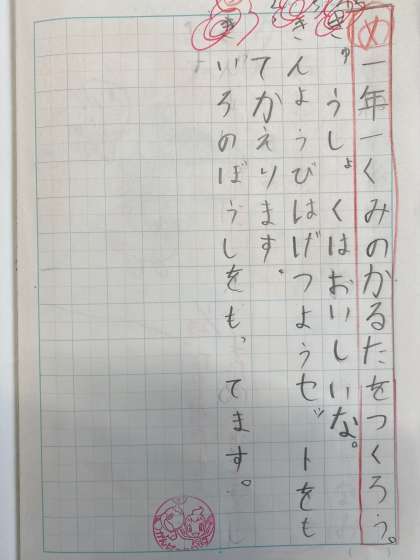 め一年一くみのかるたをつくろう。
きゅうしょくはおいしいな。
きんようびはげつようセットをも
てかえります。
きいろのぼうしをも、てます。